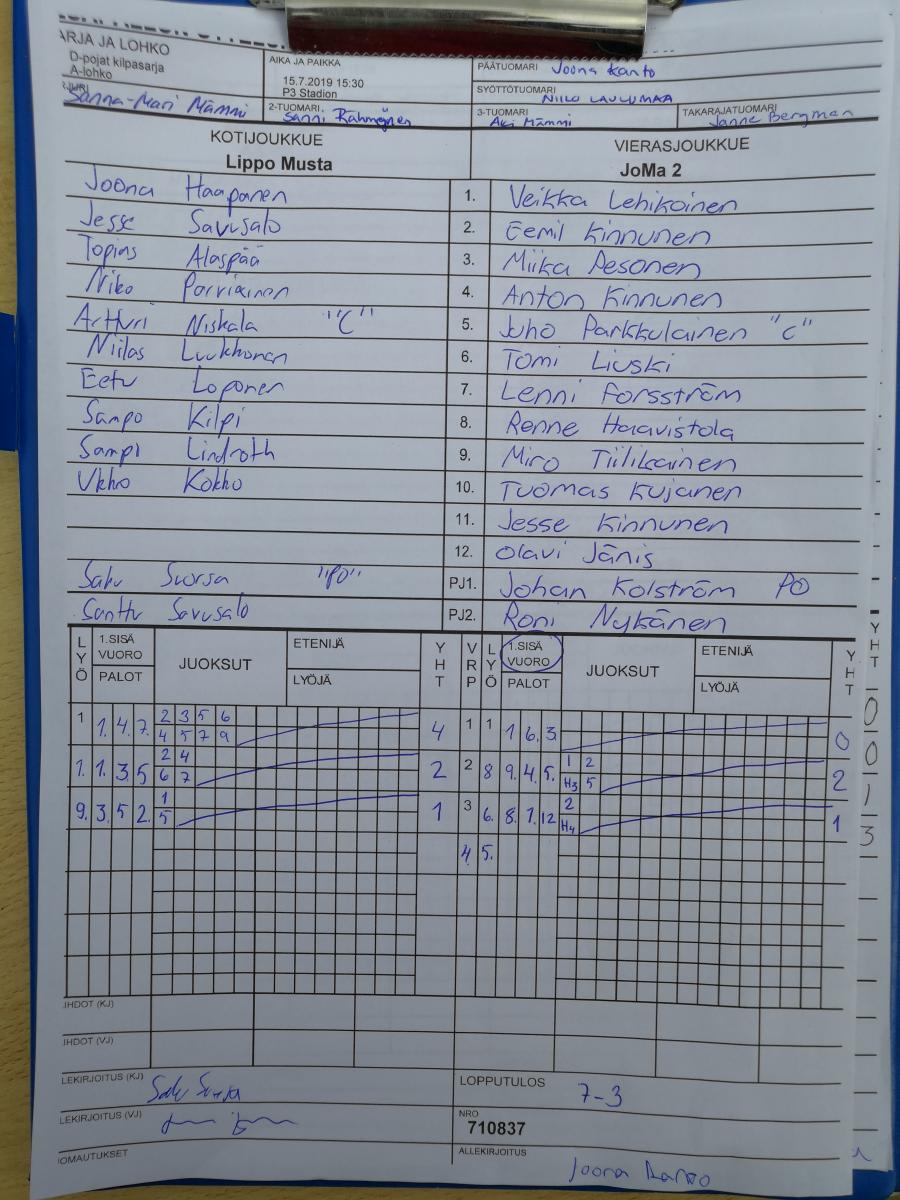 ARJA JA LOHKO
D-pojat kilpasarja
A-lohko
Sanna-Mari Mämmi
AIKA JA PAIKKA
15.7.2019 15:30
P3 Stadion
2-TUOMARI Sanni
PÄÄTUOMARI Joona Kanto
SYÖTTÖTUOMARI NIILO LAULUMAA
3-TUOMARI Aki Mämmi
TAKARAJATUOMARI Janne Bergman
KOTIJOUKKUE VIERASJOUKKUE
Lippo Musta JoMa 2
Joona Haapanen 1. Veikka Lehikoinen
Jesse Savusalo 2. Eemil Kinnunen
Topias Alaspää 3. Miika Pesonen
Niko Porviainen 4. Anton Kinnunen
Artturi Niskala "C" 5. Juho Parkkulainen "C"
Niilas Luukkonen 6. Tomi Liuski
Eetu Loponen 7. Lenni Forsström
Sampo Kilpi 8. Renne Haavistola
Sampi Lindroth 9. Miro Tiilikainen
Ukko Kokko 10. Tuomas Kujanen
11. Jesse Kinnunen
12. Olavi Jänis
Saku Suorsa "PO" PJ1. Johan Kolström PO
Santtu Savusalo PJ2. Roni Nykänen
LYÖ 1.SISÄ VUORO PALOT JUOKSUT ETENIJÄ LYÖJÄ YHT VRP LYÖ 1.SISÄ VUORO PALOT JUOKSUT ETENIJÄ LYÖJÄ YHT YHT
1 1. 4. 7. 2 3 5 6 4 1 1 1 6. 3. 0 0
4 5 7 9 0
1. 1. 3. 5 2 4 2 2 8 9. 4. 5. 1 2 2 1
6 7 H3 5
9. 3. 5 2. 1 1 3 6. 8. 1. 12 2 1 3
5 H4
4 5.
JHDOT (KJ)
JHDOT (VJ)
LEKIRJOITUS (KJ) Saku Suorsa
LOPPUTULOS 7-3
LEKIRJOITUS (VJ)
NRO
710837
OMAUTUKSET
ALLEKIRJOITUS Joona Kanto